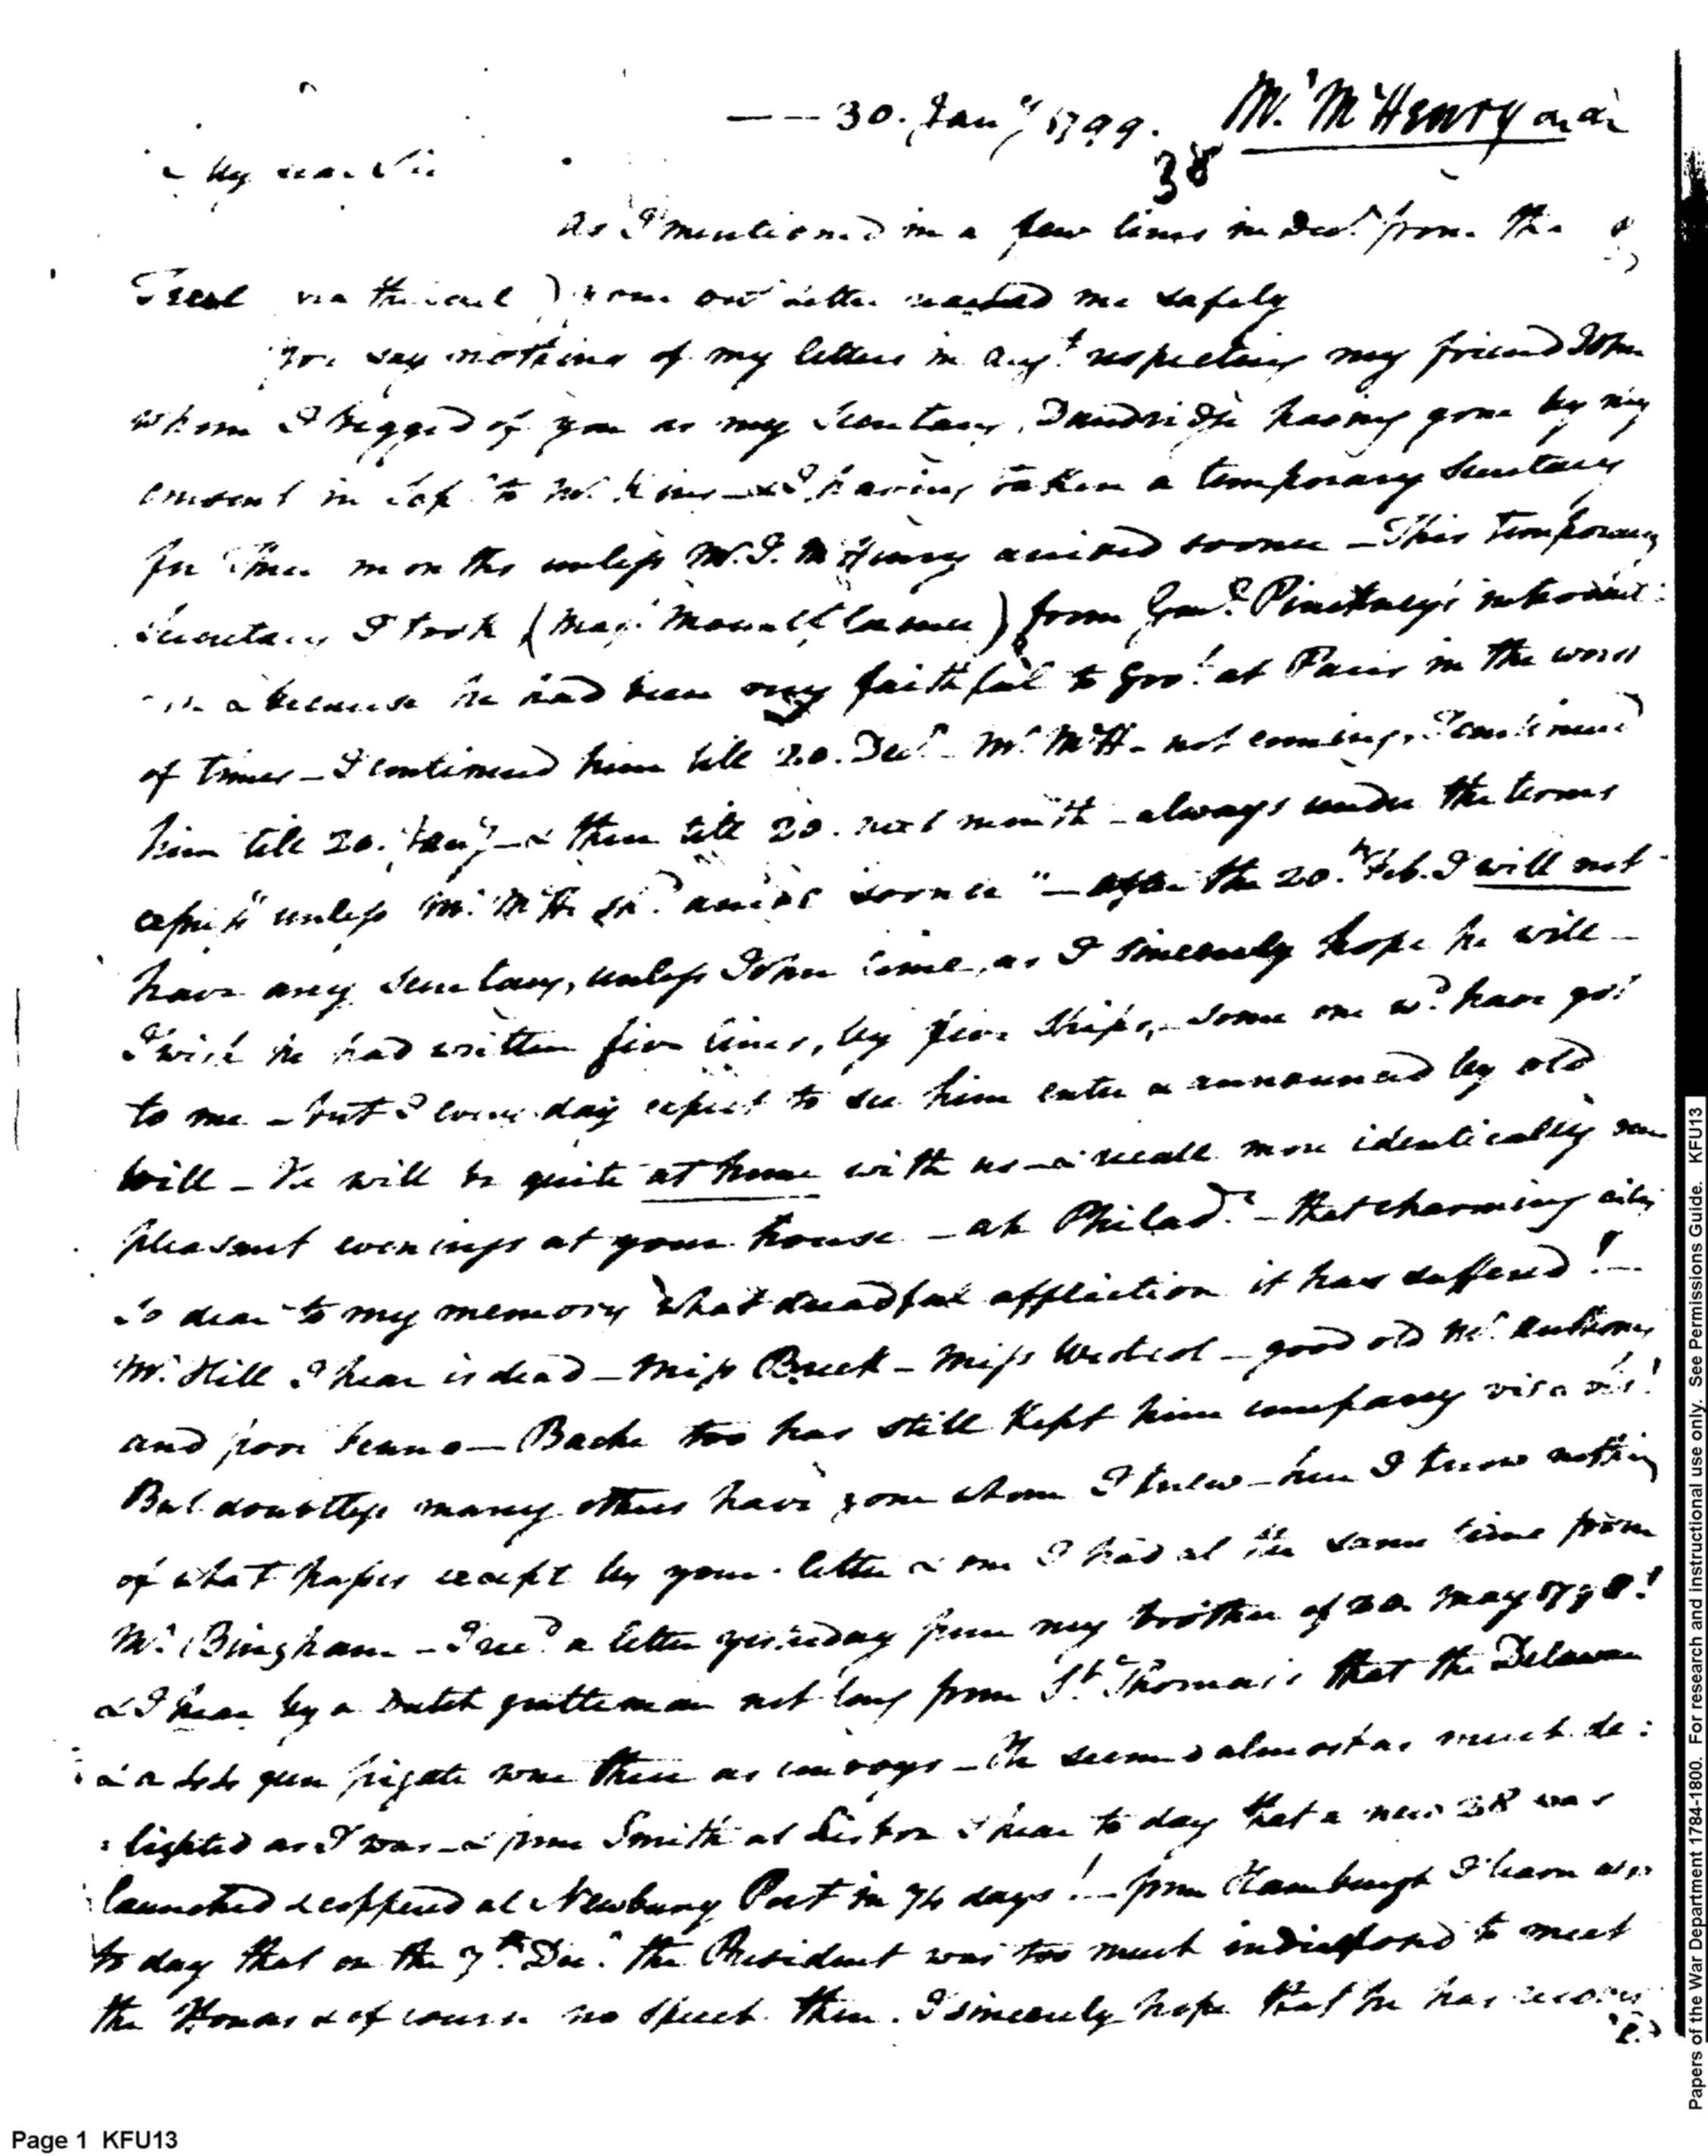 — 30. Jany 1799. Mr. McHenry
38
My dear Sir
as I mentioned in a few lines in Decr. from the
Texel via the ) your Letter me safely
You say nothing of my letters in Augt. respecting my friend John
whom I begged of you as my Secretary, Dandridge having gone by my
consent in Sepr. to Mr. King — & I having taken a temporary Secretary
for three months unless Mr. J. McHenry arrived sooner — This temporary
Secretary I took (Maj. Mountflorence) from Genl. Pinckney's introduct:
ion & because he had been very faithful to Govt. at Paris in the worst
of times — I continued him till 20. Decr. — Mr. McH — not coming, I continued
him till 20. Jany — & then till 20. next month — always under the terms
express "unless Mr. McH. shd. arrive sooner" — after the 20. Feb. I will not
have any Secretary, unless John come, as I sincerely hope he will —
I wish he had written five lines, by five ships, — some one wd. have got
to me — but I every day expect to see him enter & announced by old
Will — He will be quite at home with us — & recall more identically our
pleasant evenings at your house — ah Philada. — that charming city
so dear to my memory what dreadful affliction it has suffered! —
Mr. Hill I hear is dead — Miss Breck — Miss — good old Mr. Anthony
and poor Fenno — Bache too has still kept him company vis a vis!
But doubtless many others have gone whom I knew — here I know nothing
of what passes except by your letter & one I had at the same time from
Mr. Bingham — I recd. a letter yesterday from my brother of 20 May 1798!
& I hear by a Dutch gentleman not long from St. Thomas's that the Delaware
& a gun frigate were there as convoys — He seemed almost as much de:
:lighted as I was — & from Smith at Lisbon I hear to day that a new 28 was
launched & coppered at Newbury Port in 74 days! — from Hamburgh I learn also
to day that on the 7th. Decr. the President was too much indisposed to meet
the Houses & of course no speech then. I sincerely hope that he has recover
ed
Papers of the War Department 1784-1800. For research and instructional use only. See Permissions Guide. KFU13
Page 1 KFU13